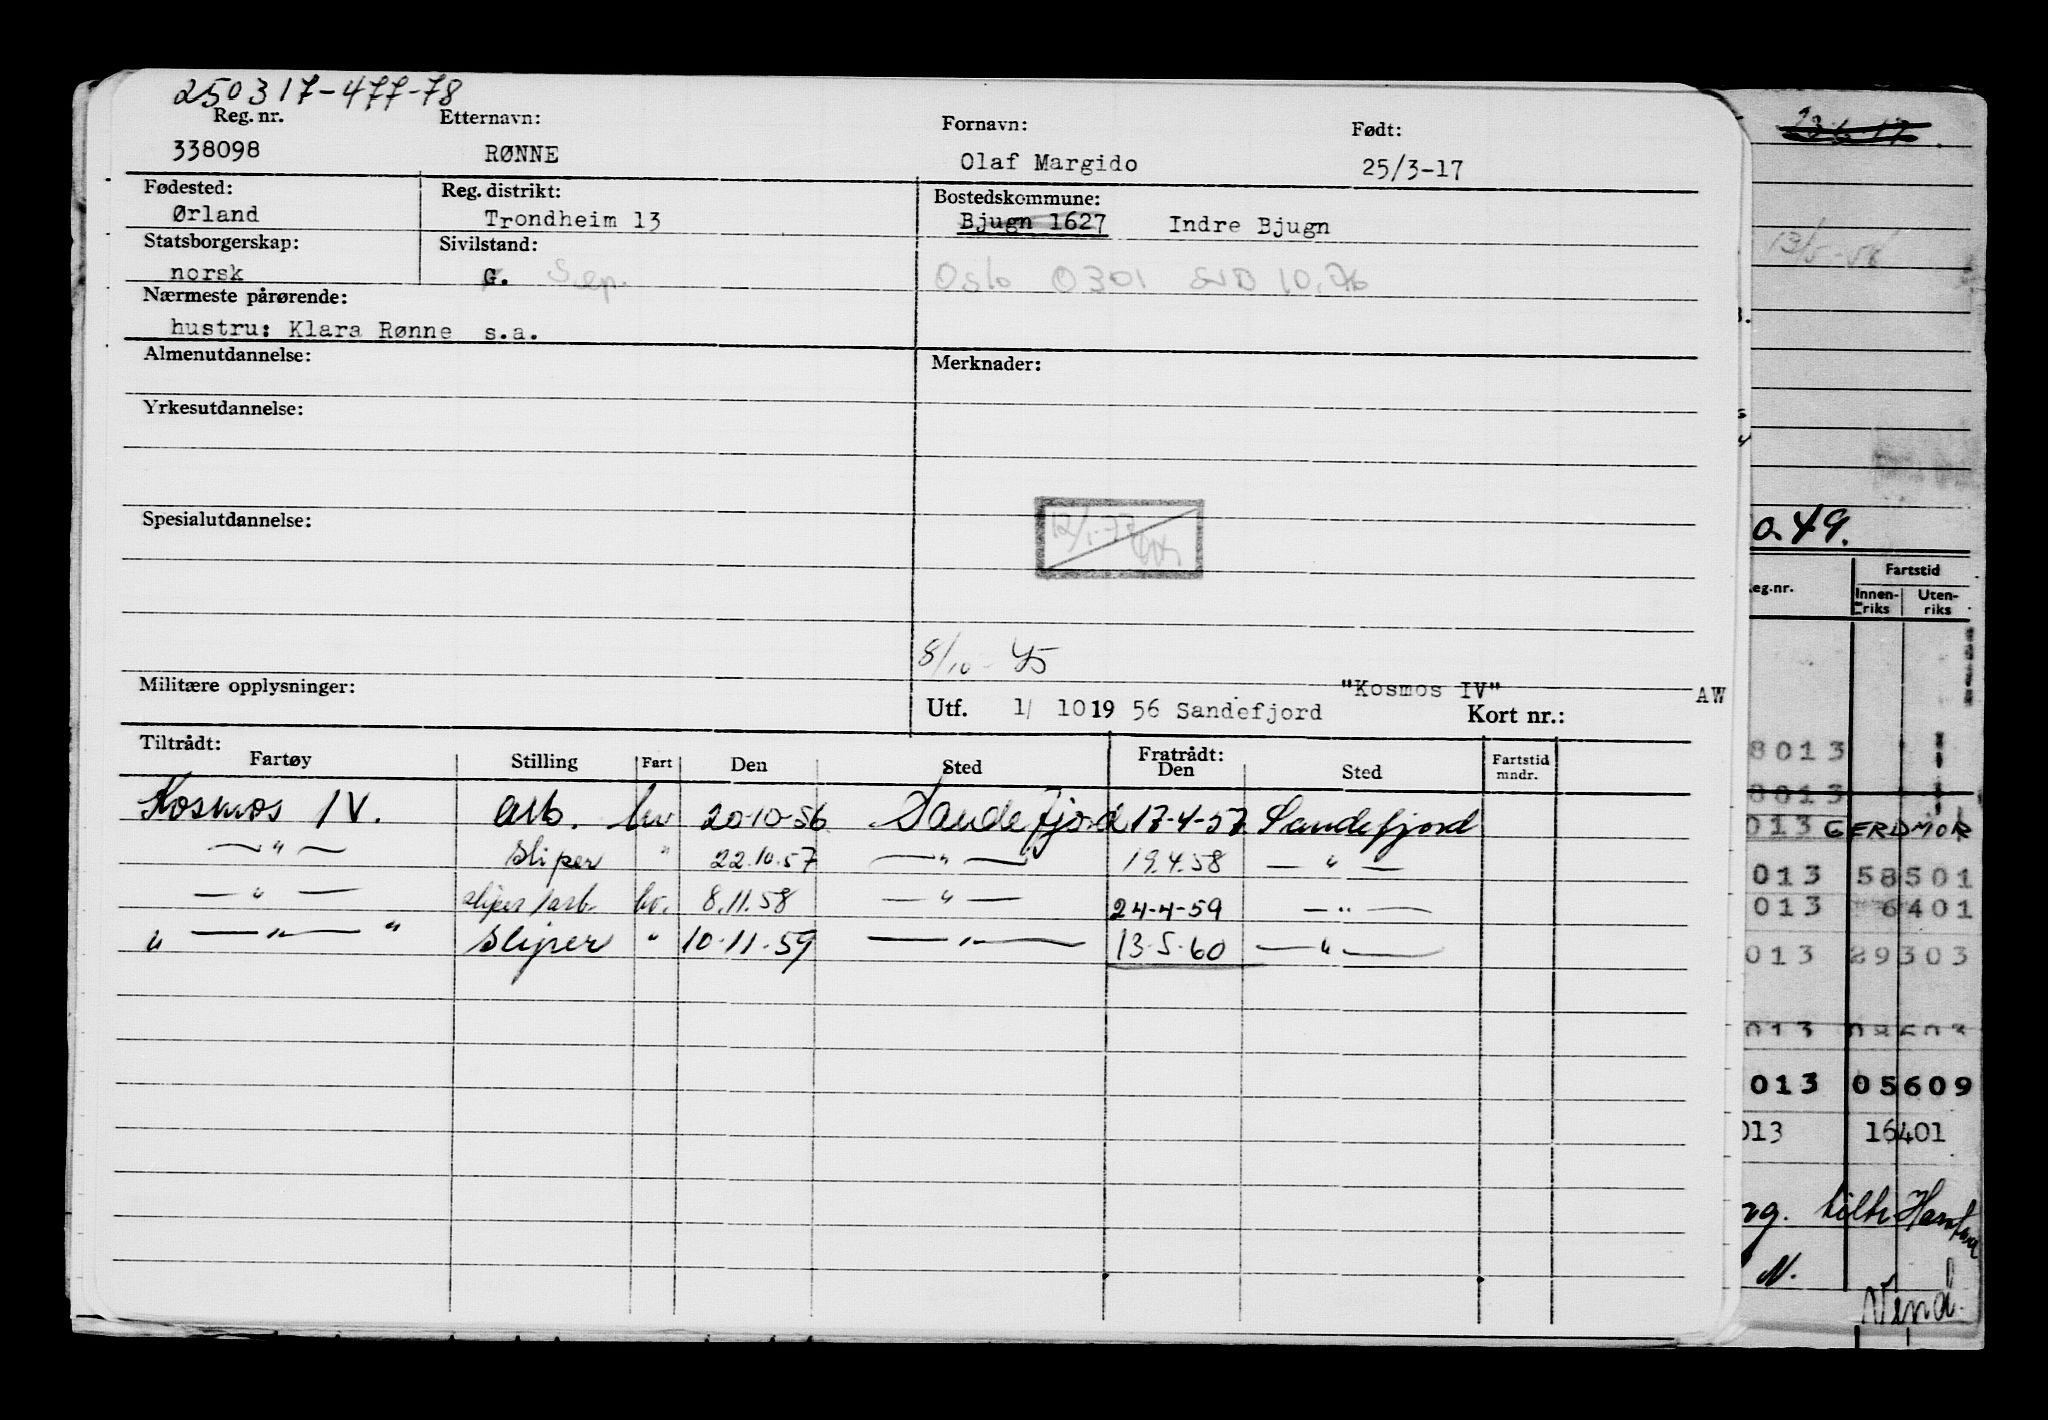 250317-477-78
Reg. nr. Etternavn: Fornavn: Født:
338098 RØNNE Olaf Margido 25/3-17
Fødested: Reg. distrikt: Bostedskommune:
Ørland Trondheim 13 Bjugn 1627 Indre Bjugn
Statsborgerskap: Sivilstand:
norsk G. Sep. Oslo 0301 10.76
Nærmeste pårørende:
hustru: Klara Rønne s.a.
Almenutdannelse: Merknader:
Yrkesutdannelse:
Spesialutdannelse:
12/1-77
8/10-45
Militære opplysninger: "Kosmos IV" AW
Utf. 1/ 10 19 56 Sandefjord Kort nr.:
Tiltrådt: Fratrådt:
Fartøy Stilling Fart Den Sted Den Sted Fartstid mndr.
Kosmos IV. arb. hv 20-10-56 Sandefjord 17-4-57 Sandefjord
—"— sliper " 22.10.57 —"— 19.4.58 —"—
—"— sliper/arb. hv. 8.11.58 —"— 24-4-59 —"—
" —"— " Sliper " 10-11-59 —"— 13-5-60 —"—
23-6-17.
13/5-58
a 49.
eg.nr. Fartstid
Innen-riks Uten-riks
8013
8013
013 GERDMOR
013 58501
013 6401
013 29303
013 08603
013 05609
013 16401
ng. tilh
N.
Vend.